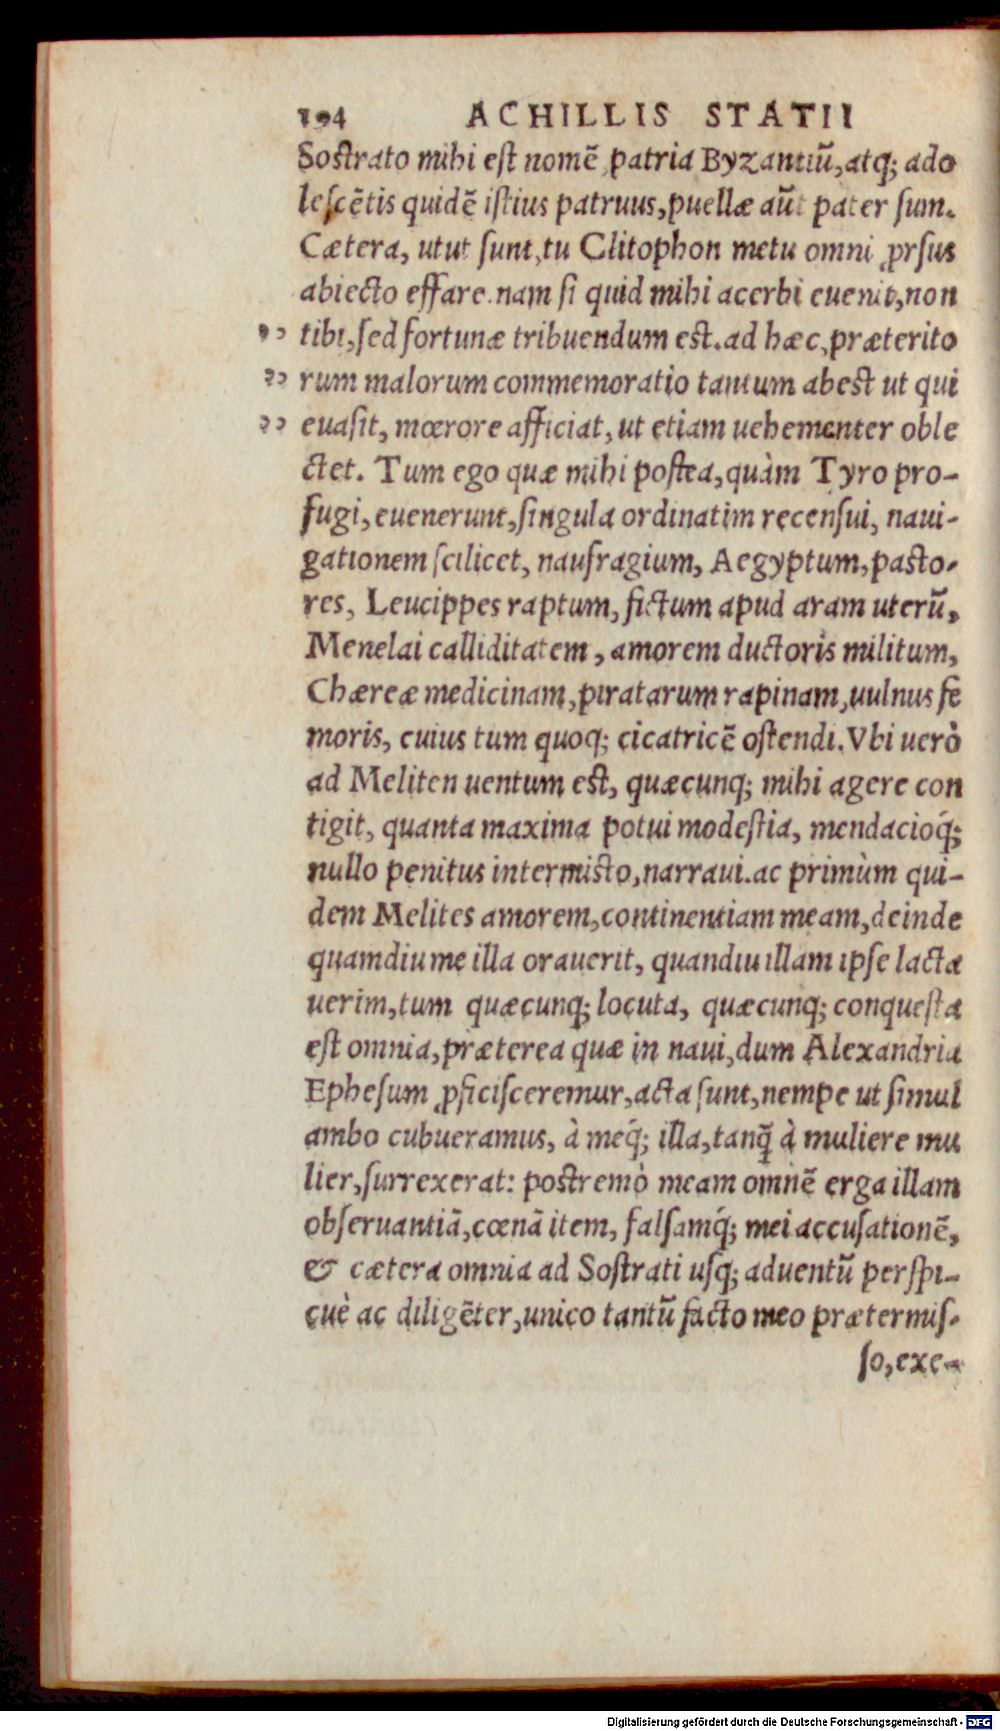 194 ACHILLIS STATII
Sostrato mihi est nomē, patria Byzantiū, atq; ado
lescētis quidē istius patruus, puellæ aūt pater sum.
Cætera, utut sunt, tu Clitophon metu omni ꝓrsus
abiecto effare. nam si quid mihi acerbi euenit, non
„ tibi, sed fortunæ tribuendum est. ad hæc, præterito
„ rum malorum commemoratio tantum abest ut qui
„ euasit, mœrore afficiat, ut etiam uehementer oble
ctet. Tum ego quæ mihi postea, quàm Tyro pro-
fugi, euenerunt, singula ordinatim recensui, naui-
gationem scilicet, naufragium, Aegyptum, pasto-
res, Leucippes raptum, fictum apud aram uterū,
Menelai calliditatem, amorem ductoris militum,
Chæreæ medicinam, piratarum rapinam, uulnus fe
moris, cuius tum quoq; cicatricē ostendi. Vbi uerò
ad Meliten uentum est, quæcunq; mihi agere con
tigit, quanta maxima potui modestia, mendacioq́;
nullo penitus intermisto, narraui. ac primùm qui-
dem Melites amorem, continentiam meam, deinde
quamdiu me illa orauerit, quandiu illam ipse lacta
uerim, tum quæcunq; locuta, quæcunq; conquesta
est omnia, præterea quæ in naui, dum Alexandria
Ephesum ꝓficisceremur, acta sunt, nempe ut simul
ambo cubueramus, à meq́; illa, tanq̃ à muliere mu
lier, surrexerat: postremò meam omnē erga illam
obseruantiā, cœnā item, falsamq́; mei accusationē,
& cætera omnia ad Sostrati usq; aduentū perspi-
cuè ac diligēter, unico tantū facto meo prætermis-
so, exe-
Digitalisierung gefördert durch die Deutsche Forschungsgemeinschaft - DFG